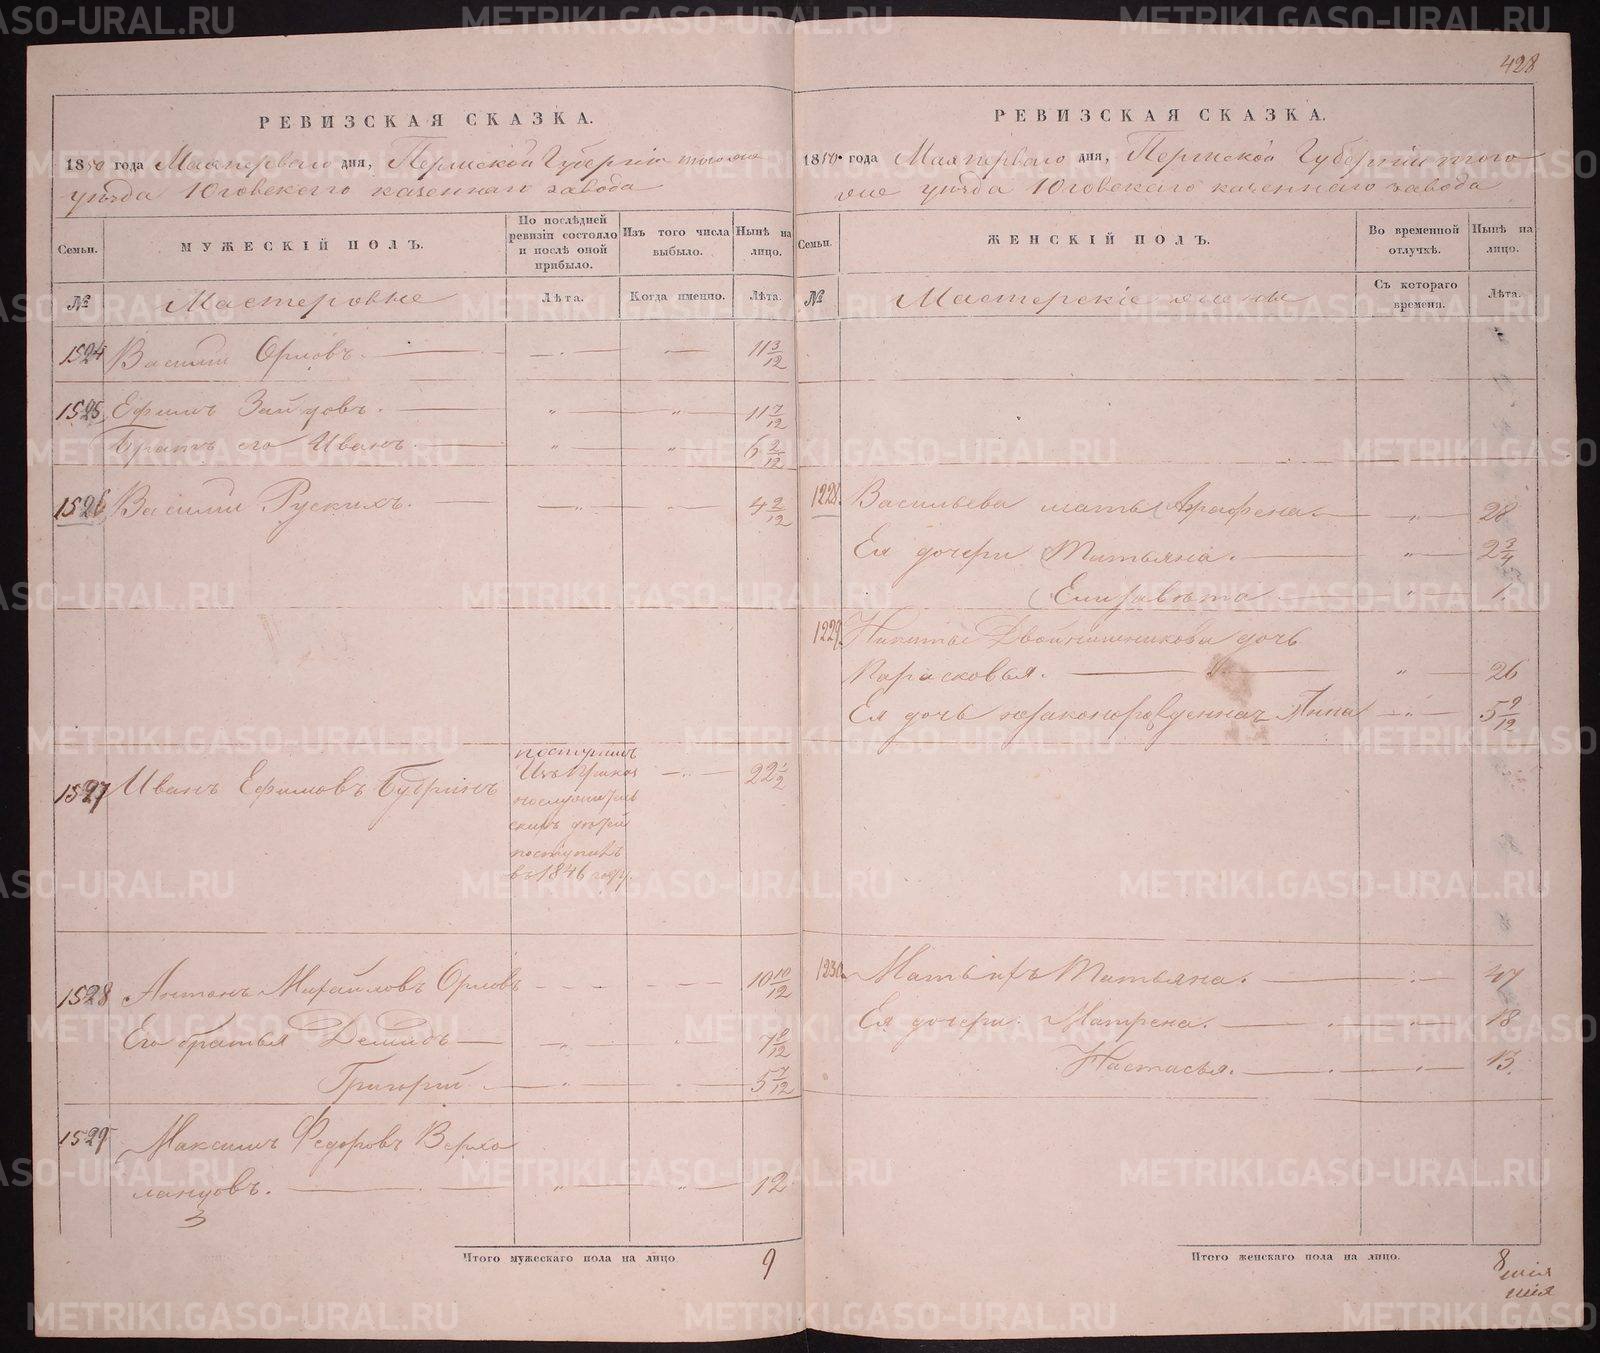 428
РЕВИЗСКАЯ СКАЗКА.
1850 года Маія перваго дня, Пермской Губерніи того же
уѣзда Юговскаго казеннаго завода
Семьи.
МУЖЕСКІЙ ПОЛЪ.
По послѣдней ревизіи состояло и послѣ оной прибыло.
Изъ того числа выбыло.
Нынѣ на лицо.
№
Мастеровые
Лѣта.
Когда именно.
Лѣта.
1524 Василій Орловъ. 11 3/12
1525 Ефимъ 11 7/12
Братъ его Иванъ. 6 2/12
1526 Василій Рускихъ. 4 2/12
1527 Иванъ Ефимовъ 22 1/2
поступилъ
поступилъ
въ 1846 году.
1528 Антонъ Михайловъ Орловъ 10 10/12
Его братья Демидъ 7 8/12
Григорій 5 7/12
1529 Максимъ Федоровъ Верхо
ланцовъ. 12
3
Итого мужескаго пола на лицо 9
РЕВИЗСКАЯ СКАЗКА.
1850 года Маія перваго дня, Пермской Губерніи того
же уѣзда Юговскаго казеннаго завода
Семьи.
ЖЕНСКІЙ ПОЛЪ.
Во временной отлучкѣ.
Нынѣ на лицо.
№
Мастерскіе жены
Съ котораго времени.
Лѣта.
1228 Васильева мать Аграфена 28
Ея дочери Татьяна. 2 3/4
Елизавета 1.
1229 Никиты Двойнишникова дочь
Парасковья. 26
Ея дочь незаконорожденная Анна 5 9/12
1230 Мать ихъ Татьяна. 47
Ея дочери: Матрена. 18
Настасья. 13.
Итого женскаго пола на лицо. 8
METRIKI.GASO-URAL.RU